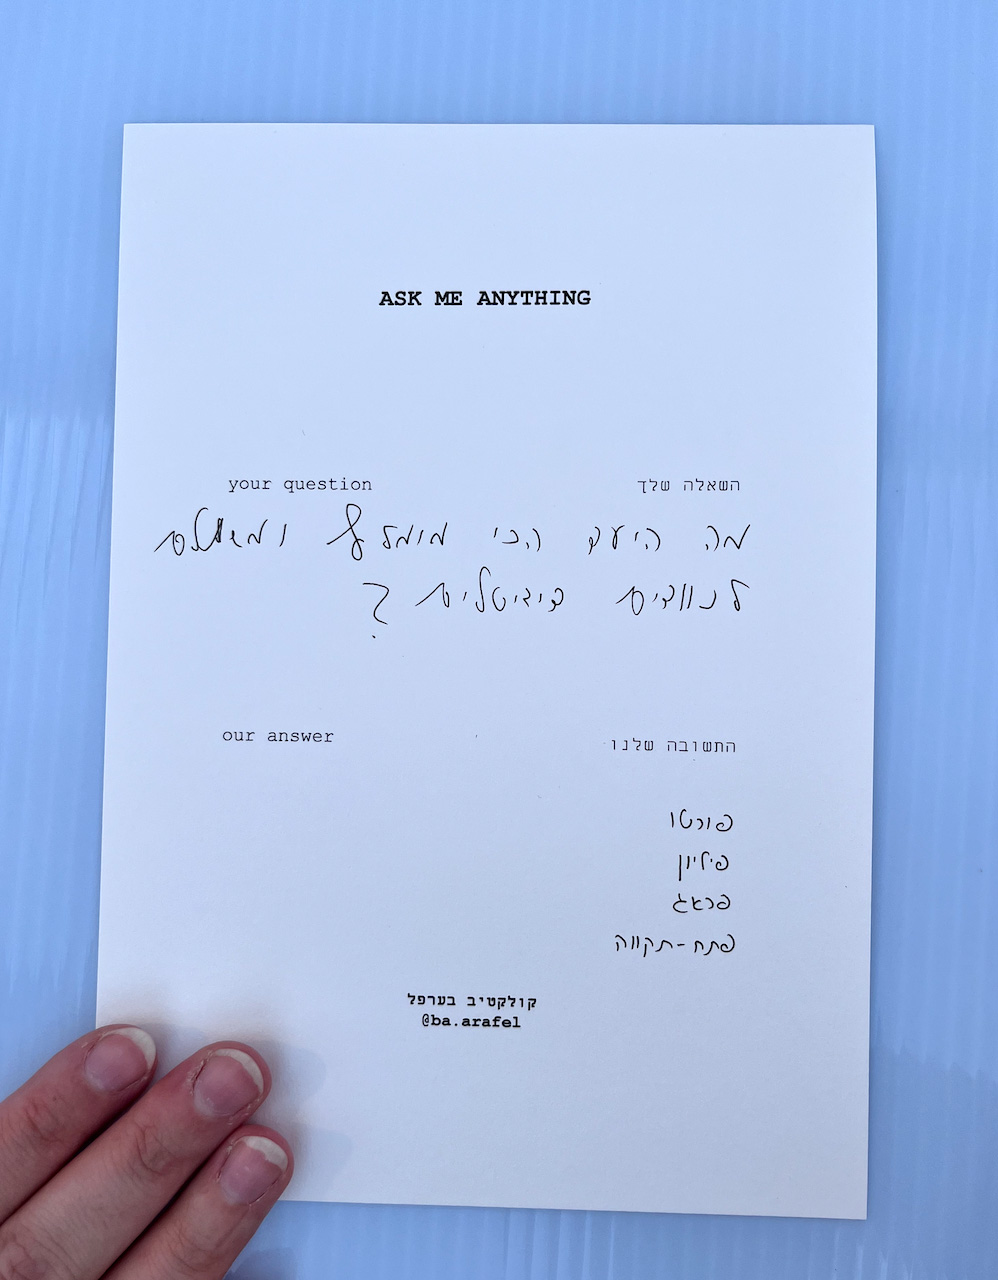 ASK ME ANYTHING
your question השאלה שלך
מה היעד הכי מומלץ ומושלם
לנוודים דיגיטלים ?
our answer התשובה שלנו
פורטו
פיליון
פראג
פתח-תקווה
קולקטיב בערפל
@ba.arafel